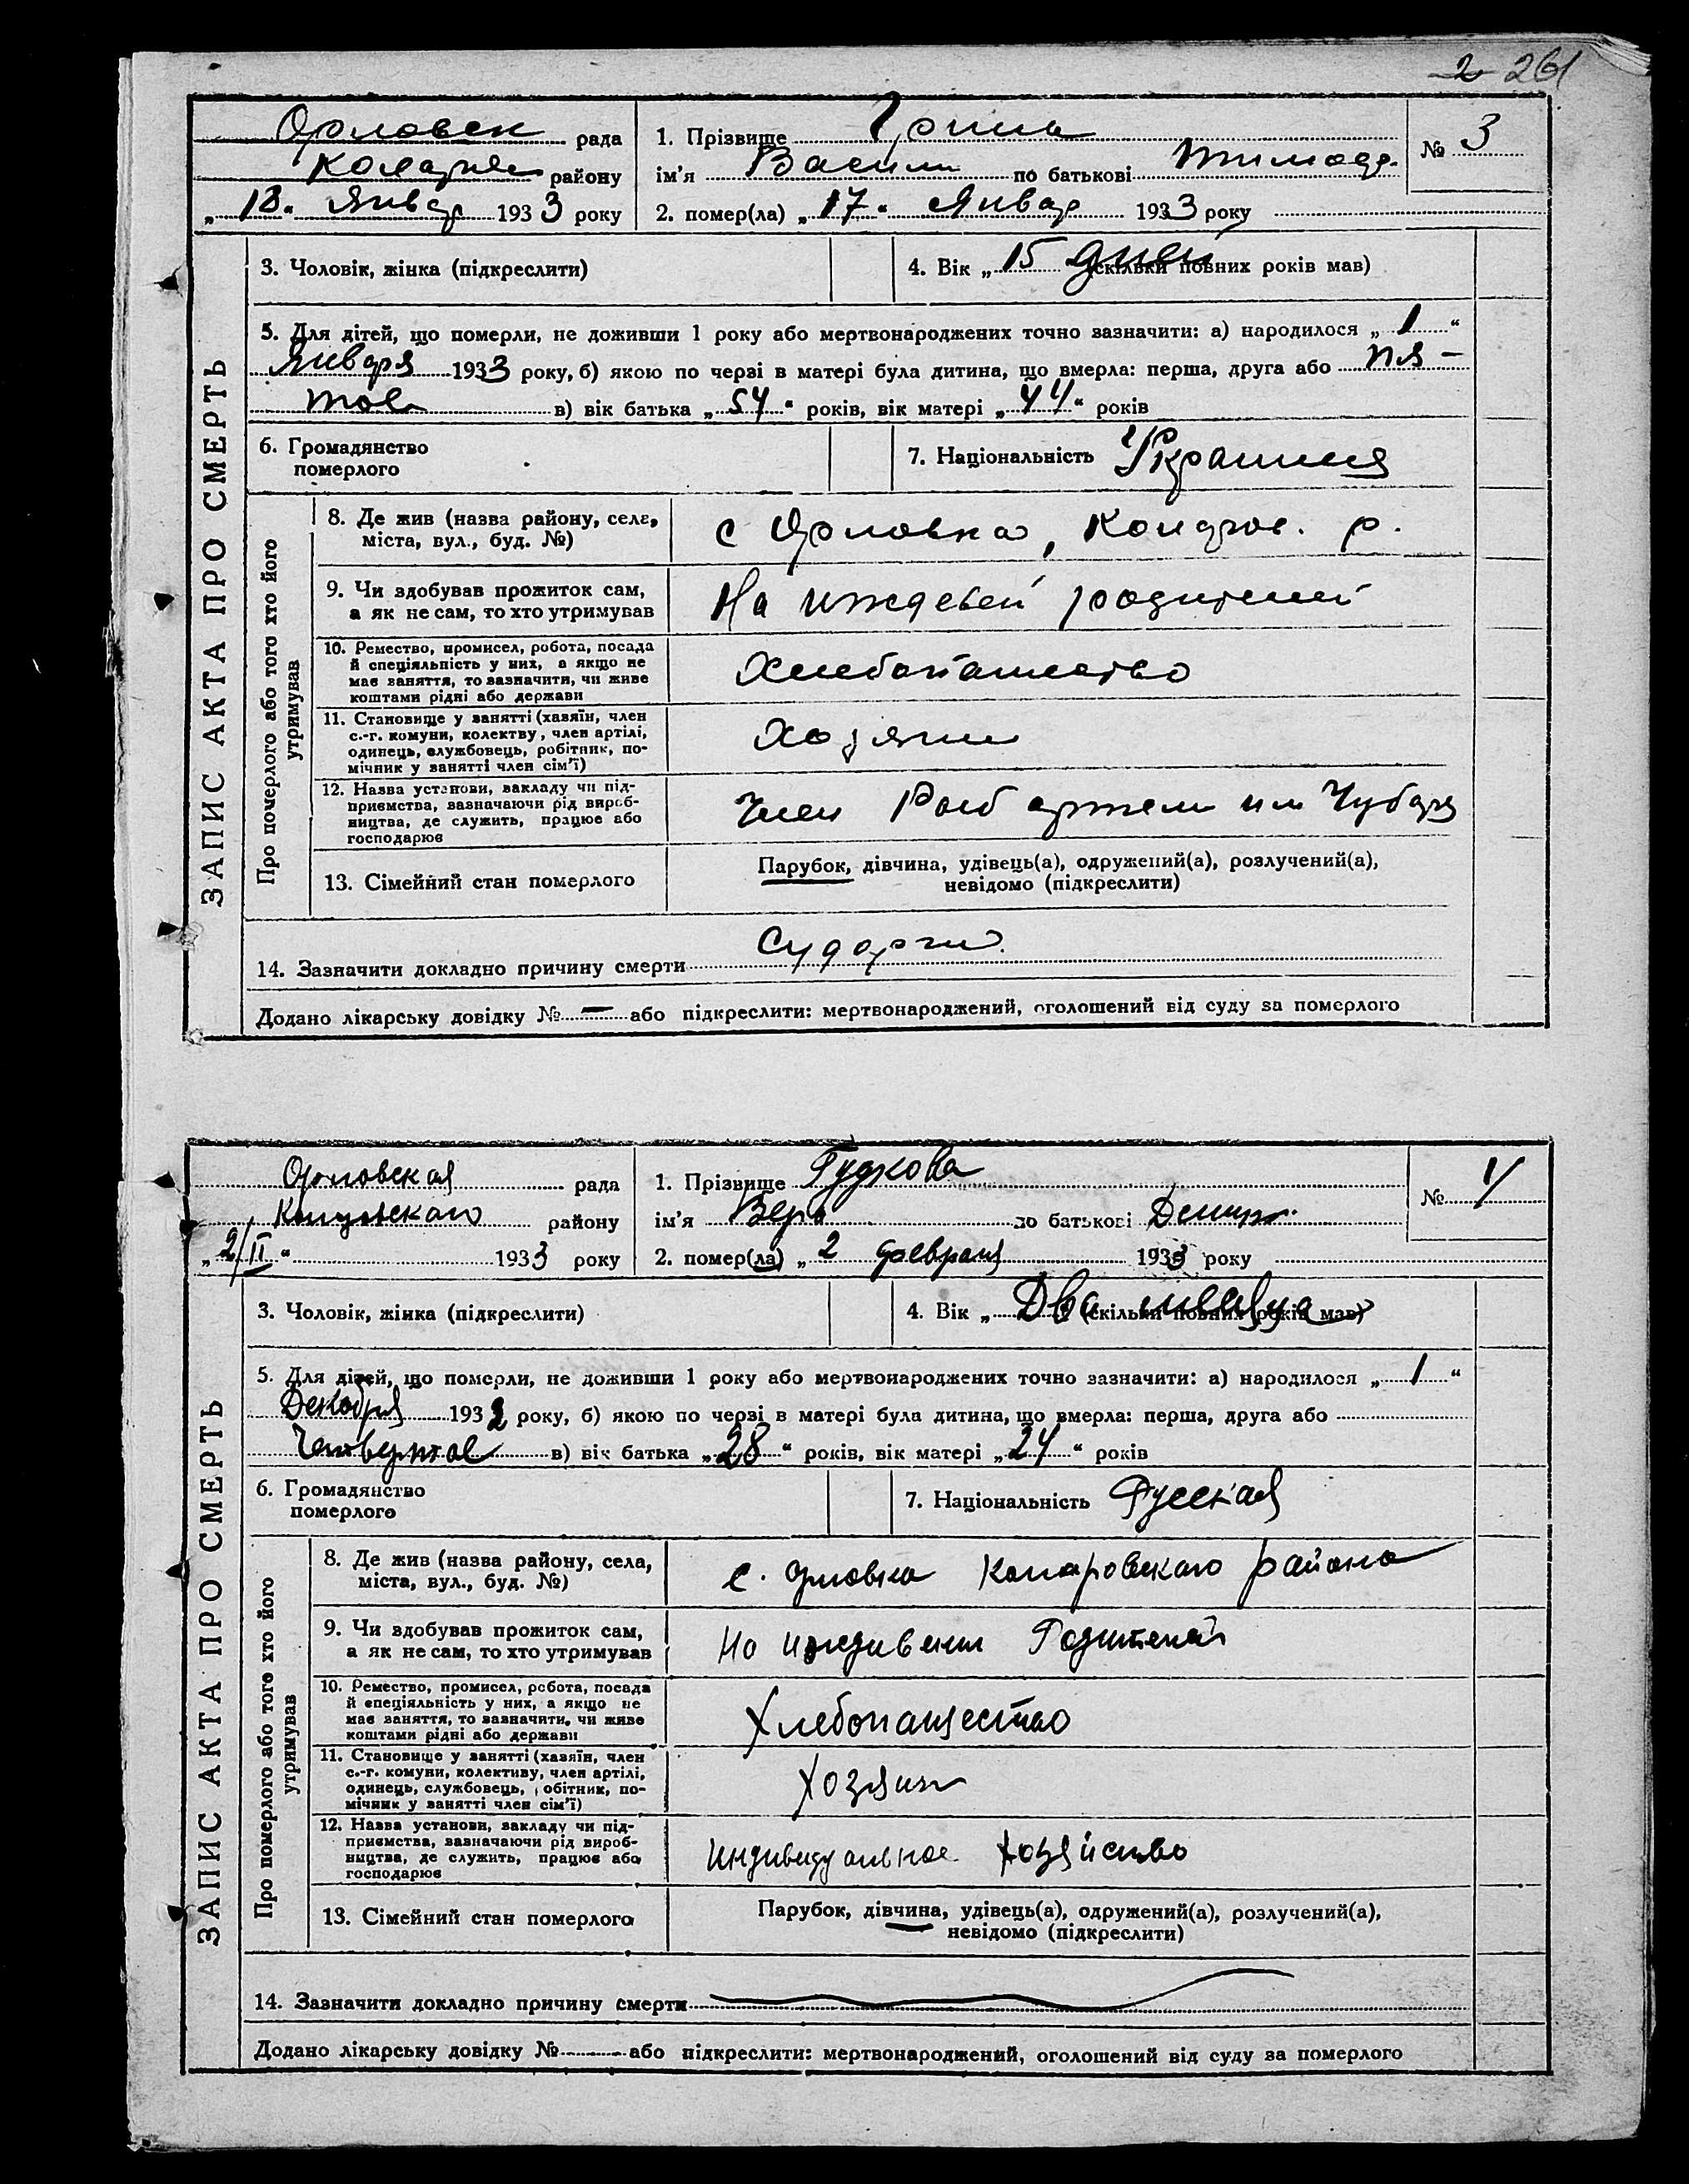 2 261
Орловск рада
района району
„ 18 “ Январ 1933 року
1. Прізвище Грина
ім'я Васили по батькові Тимофе.
2. помер(ла) „ 17 “ Январ 1933 року
№ 3
ЗАПИС АКТА ПРО СМЕРТЬ
3. Чоловік, жінка (підкреслити)
4. Вік „ 15 дней (скільки повних років мав)
5. Для дітей, що померли, не доживши 1 року або мертвонароджених точно зазначити: а) народилося „ 1 “
Января 1933 року, б) якою по черзі в матері була дитина, що вмерла: перша, друга або пя-
тое в) вік батька „ 54 “ років, вік матері „ 44 “ років
6. Громадянство
померлого
7. Національність
Про померлого або того хто його
утримував
8. Де жив (назва району, села,
міста, вул., буд. №)
с Орловка, р.
9. Чи здобував прожиток сам,
а як не сам, то хто утримував
На родителей
10. Ремество, промисел, робота, посада
й спеціяльність у них, а якщо не
має заняття, то зазначити, чи живе
коштами рідні або держави
Хлебопашество
11. Становище у занятті (хазяїн, член
с.-г. комуни, колектву, член артілі,
одинець, службовець, робітник, по-
мічник у занятті член сім'ї)
Хозяин
12. Назва установи, закладу чи під-
приємства, зазначаючи рід вироб-
ництва, де служить, працює або
господарює
Член Рыб артели им Чубаря
13. Сімейний стан померлого
Парубок, дівчина, удівець(а), одружений(а), розлучений(а),
невідомо (підкреслити)
14. Зазначити докладно причину смерти Судорги
Додано лікарську довідку № — або підкреслити: мертвонароджений, оголошений від суду за померлого
Орловская рада
району
„ 2/II “ 1933 року
1. Прізвище Гудкова
ім'я Вера по батькові
2. помер(ла) „ 2 февраля 1933 року
№ 1/
ЗАПИС АКТА ПРО СМЕРТЬ
3. Чоловік, жінка (підкреслити)
4. Вік „ Два месяца (скільки повних років мав)
5. Для дітей, що померли, не доживши 1 року або мертвонароджених точно зазначити: а) народилося „ 1 “
Декабря 1932 року, б) якою по черзі в матері була дитина, що вмерла: перша, друга або
Четвертое в) вік батька „ 28 “ років, вік матері „ 24 “ років
6. Громадянство
померлого
7. Національність Русская
Про померлого або того хто його
утримував
8. Де жив (назва району, села,
міста, вул., буд. №)
с. Орловка района
9. Чи здобував прожиток сам,
а як не сам, то хто утримував
На иждивении Родителей
10. Ремество, промисел, робота, посада
й спеціяльність у них, а якщо не
має заняття, то зазначити, чи живе
коштами рідні або держави
Хлебопащество
11. Становище у занятті (хазяїн, член
с.-г. комуни, колективу, член артілі,
одинець, службовець, обітник, по-
мічник у занятті член сім'ї)
Хозяин
12. Назва установи, закладу чи під-
приємства, зазначаючи рід вироб-
ництва, де служить, працює або
господарює
Индивидуальное хозяйство
13. Сімейний стан померлого
Парубок, дівчина, удівець(а), одружений(а), розлучений(а),
невідомо (підкреслити)
14. Зазначити докладно причину смерти
Додано лікарську довідку № або підкреслити: мертвонароджений, оголошений від суду за померлого